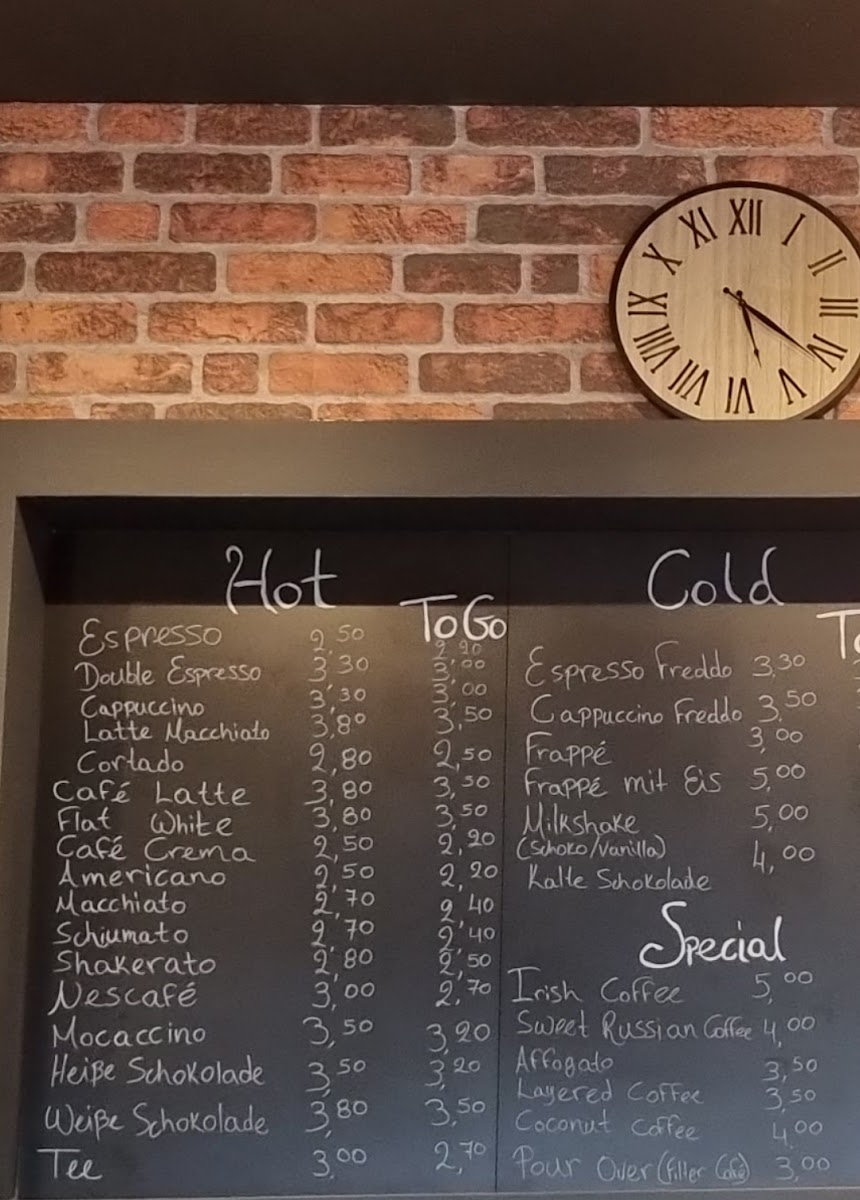 XII
I
II
III
IV
V
VI
VII
VIII
IX
X
XI
Hot
To Go
Espresso 2,50 2,20
Double Espresso 3,30 3,00
Cappuccino 3,30 3,00
Latte Macchiato 3,80 3,50
Cortado 2,80 2,50
Café Latte 3,80 3,50
Flat White 3,80 3,50
Café Crema 2,50 2,20
Americano 2,50 2,20
Macchiato 2,70 2,40
Schiumato 2,70 2,40
Shakerato 2,80 2,50
Nescafé 3,00 2,70
Mocaccino 3,50 3,20
Heiße Schokolade 3,50 3,20
Weiße Schokolade 3,80 3,50
Tee 3,00 2,70
Cold
Espresso Freddo 3,30
Cappuccino Freddo 3,50
Frappé 3,00
Frappé mit Eis 5,00
Milkshake 5,00
(Schoko/Vanilla)
Kalte Schokolade 4,00
Special
Irish Coffee 5,00
Sweet Russian Coffee 4,00
Affogato 3,50
Layered Coffee 3,50
Coconut Coffee 4,00
Pour Over (Filter Café) 3,00